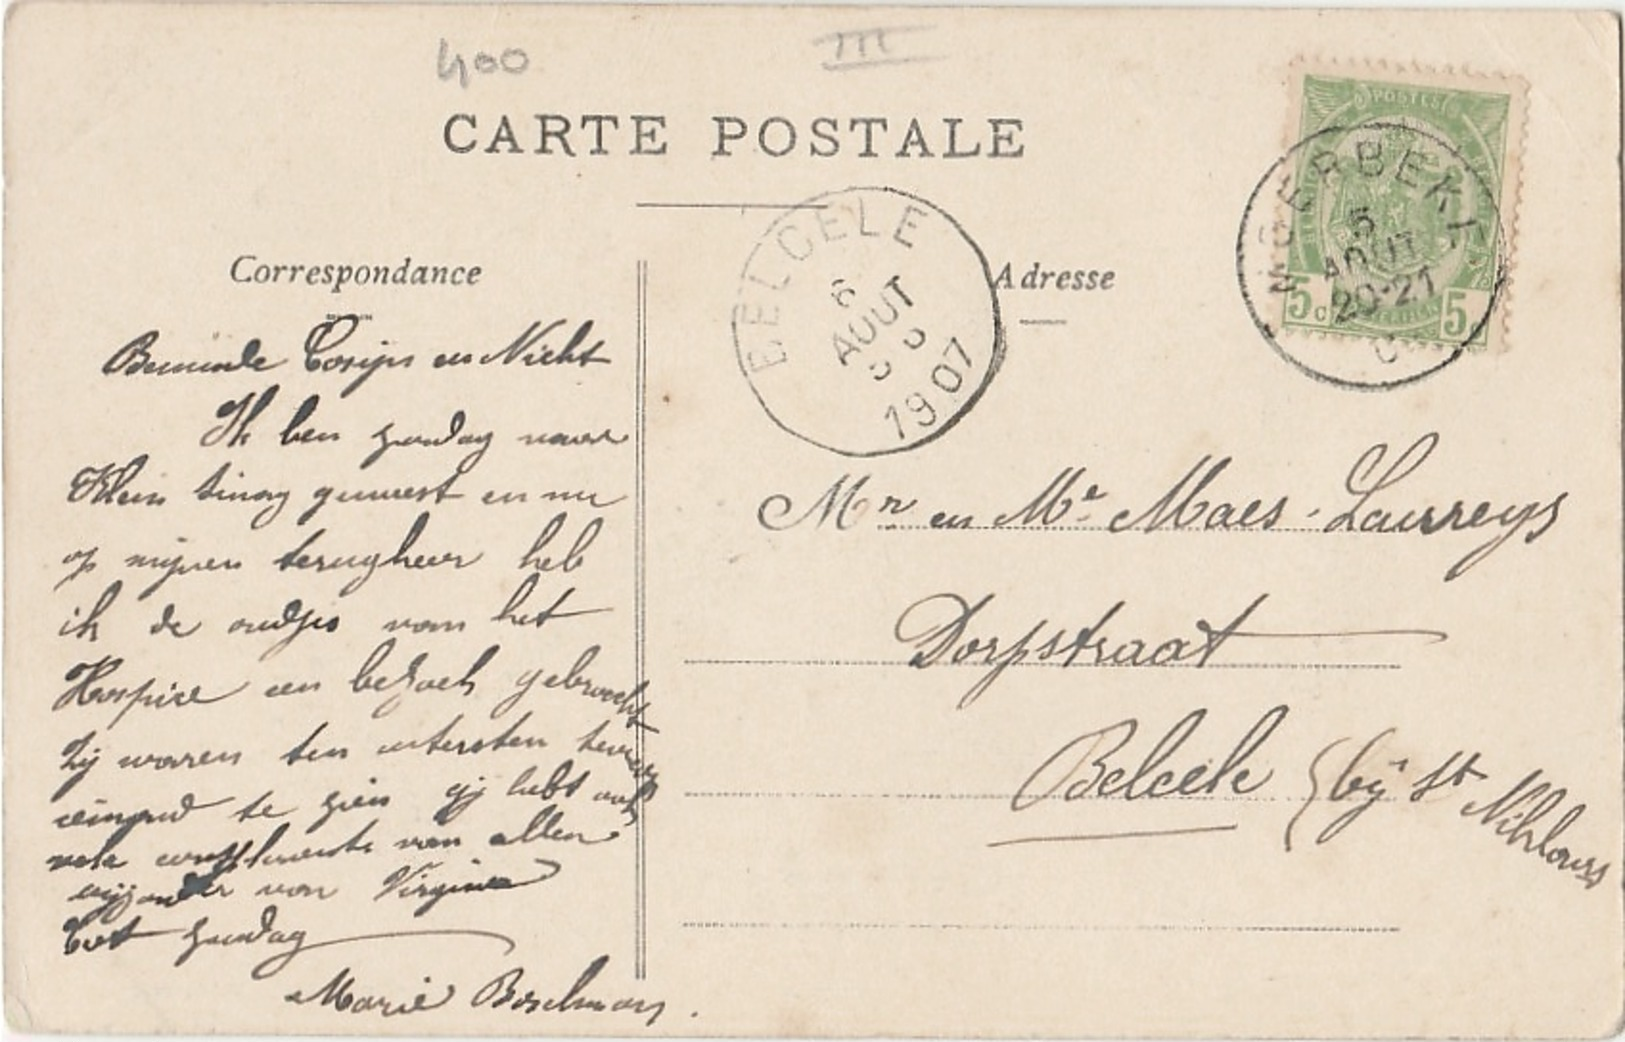 400
III
CARTE POSTALE
POSTES
MOERBEKE
5
AOUT
20-21
5c
5
BELCELE
6
AOUT
1907
Correspondance
Adresse
Beminde Cosijn en Nicht
Ik ben zondag naar
Klein Sinay geweest en nu
op mijnen terugkeer heb
ik de oudjes van het
Hospice een bezoek gebracht
Zij waren ten uitersten
te zien gij hebt ook
vele complimenten van allen
bijzonder van Virginie
Tot zondag
Marie Boselmans.
Mr en Me Maes-Laurreys
Dorpstraat
Belcele (bij St Niklaas